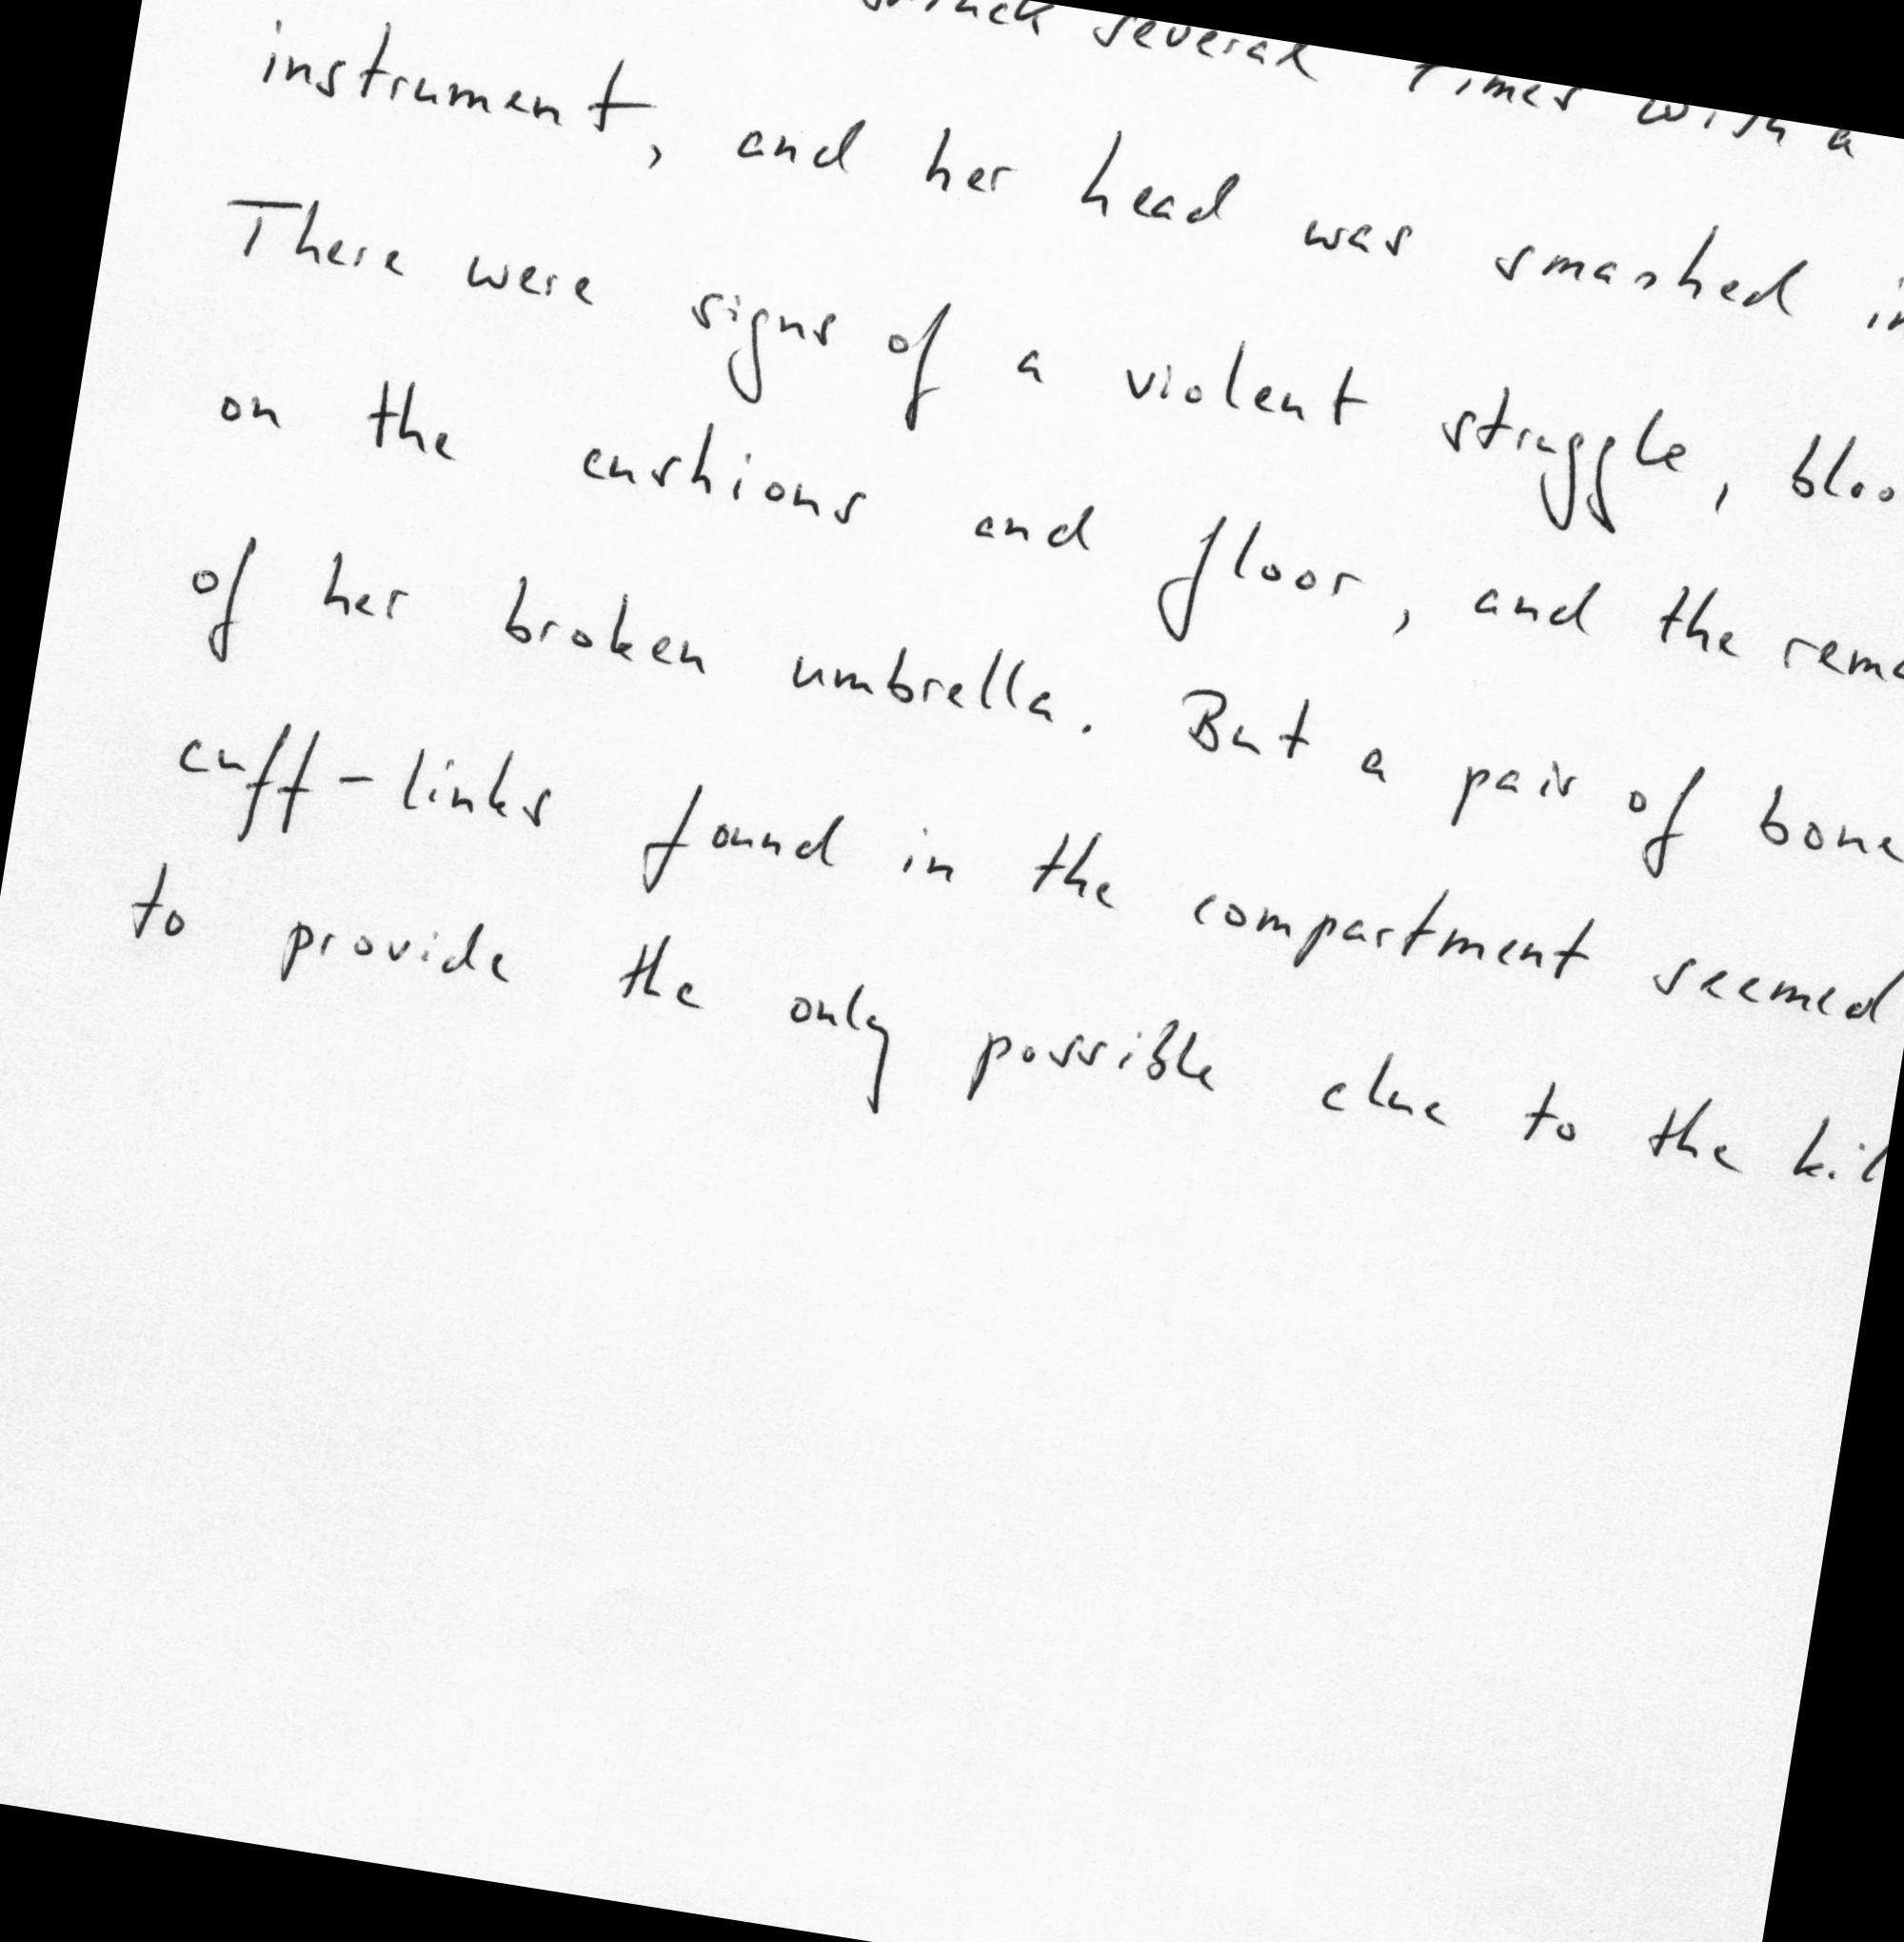 struck several times with a
instrument, and her head was smashed in
There were signs of a violent struggle,
on the cushions and floor, and the
of her broken umbrella. But a pair of bone
cuff-links found in the compartment seemed
to provide the only possible clue to the